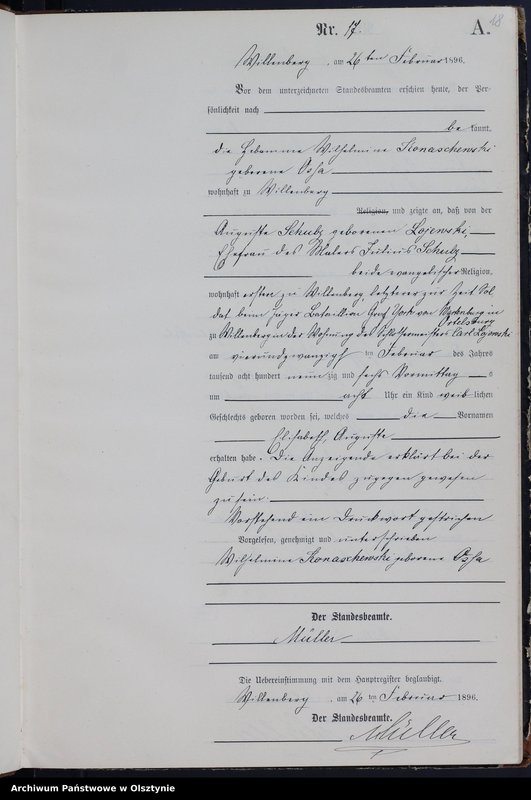 18
Nr. 17 A.
Willenberg, am 26ten Februar 1896.
Vor dem unterzeichneten Standesbeamten erschien heute, der Per-
sönlichkeit nach
be kannt,
die Hebamme Wilhelmine Konaschewski
geborene Ossa
wohnhaft zu Willenberg
Religion, und zeigte an, daß von der
Auguste Schulz geborenen Lojewski,
Ehefrau des Malers Julius Schulz
beide evangelischer Religion,
wohnhaft erstere zu Willenberg, letzterer zur Zeit Sol
dat beim Jäger Bataillon Graf York von Wartenburg in
Ortelsburg
zu Willenberg in der Wohnung des Schlossermeisters Carl
am vierundzwanzigsten ten Februar des Jahres
tausend acht hundert neun zig und sechs Vormittag s
um acht Uhr ein Kind weib lichen
Geschlechts geboren worden sei, welches die Vornamen
Elisabeth, Auguste
erhalten habe. Die Anzeigende erklärt bei der
Geburt des Kindes zugegen gewesen
zu sein.
Vorstehend ein Druckwort gestrichen
Vorgelesen, genehmigt und unterschrieben
Wilhelmine Konaschewski geborene Ossa
Der Standesbeamte.
Müller
Die Uebereinstimmung mit dem Hauptregister beglaubigt.
Willenberg, am 26 ten Februar 1896.
Der Standesbeamte.
Müller
Archiwum Państwowe w Olsztynie